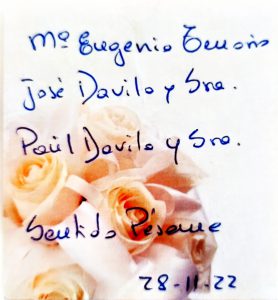 Mª Eugenia Tenorio
José Davila y Sra.
Paúl Davila y Sra.
Sentido Pésame
28-11-22